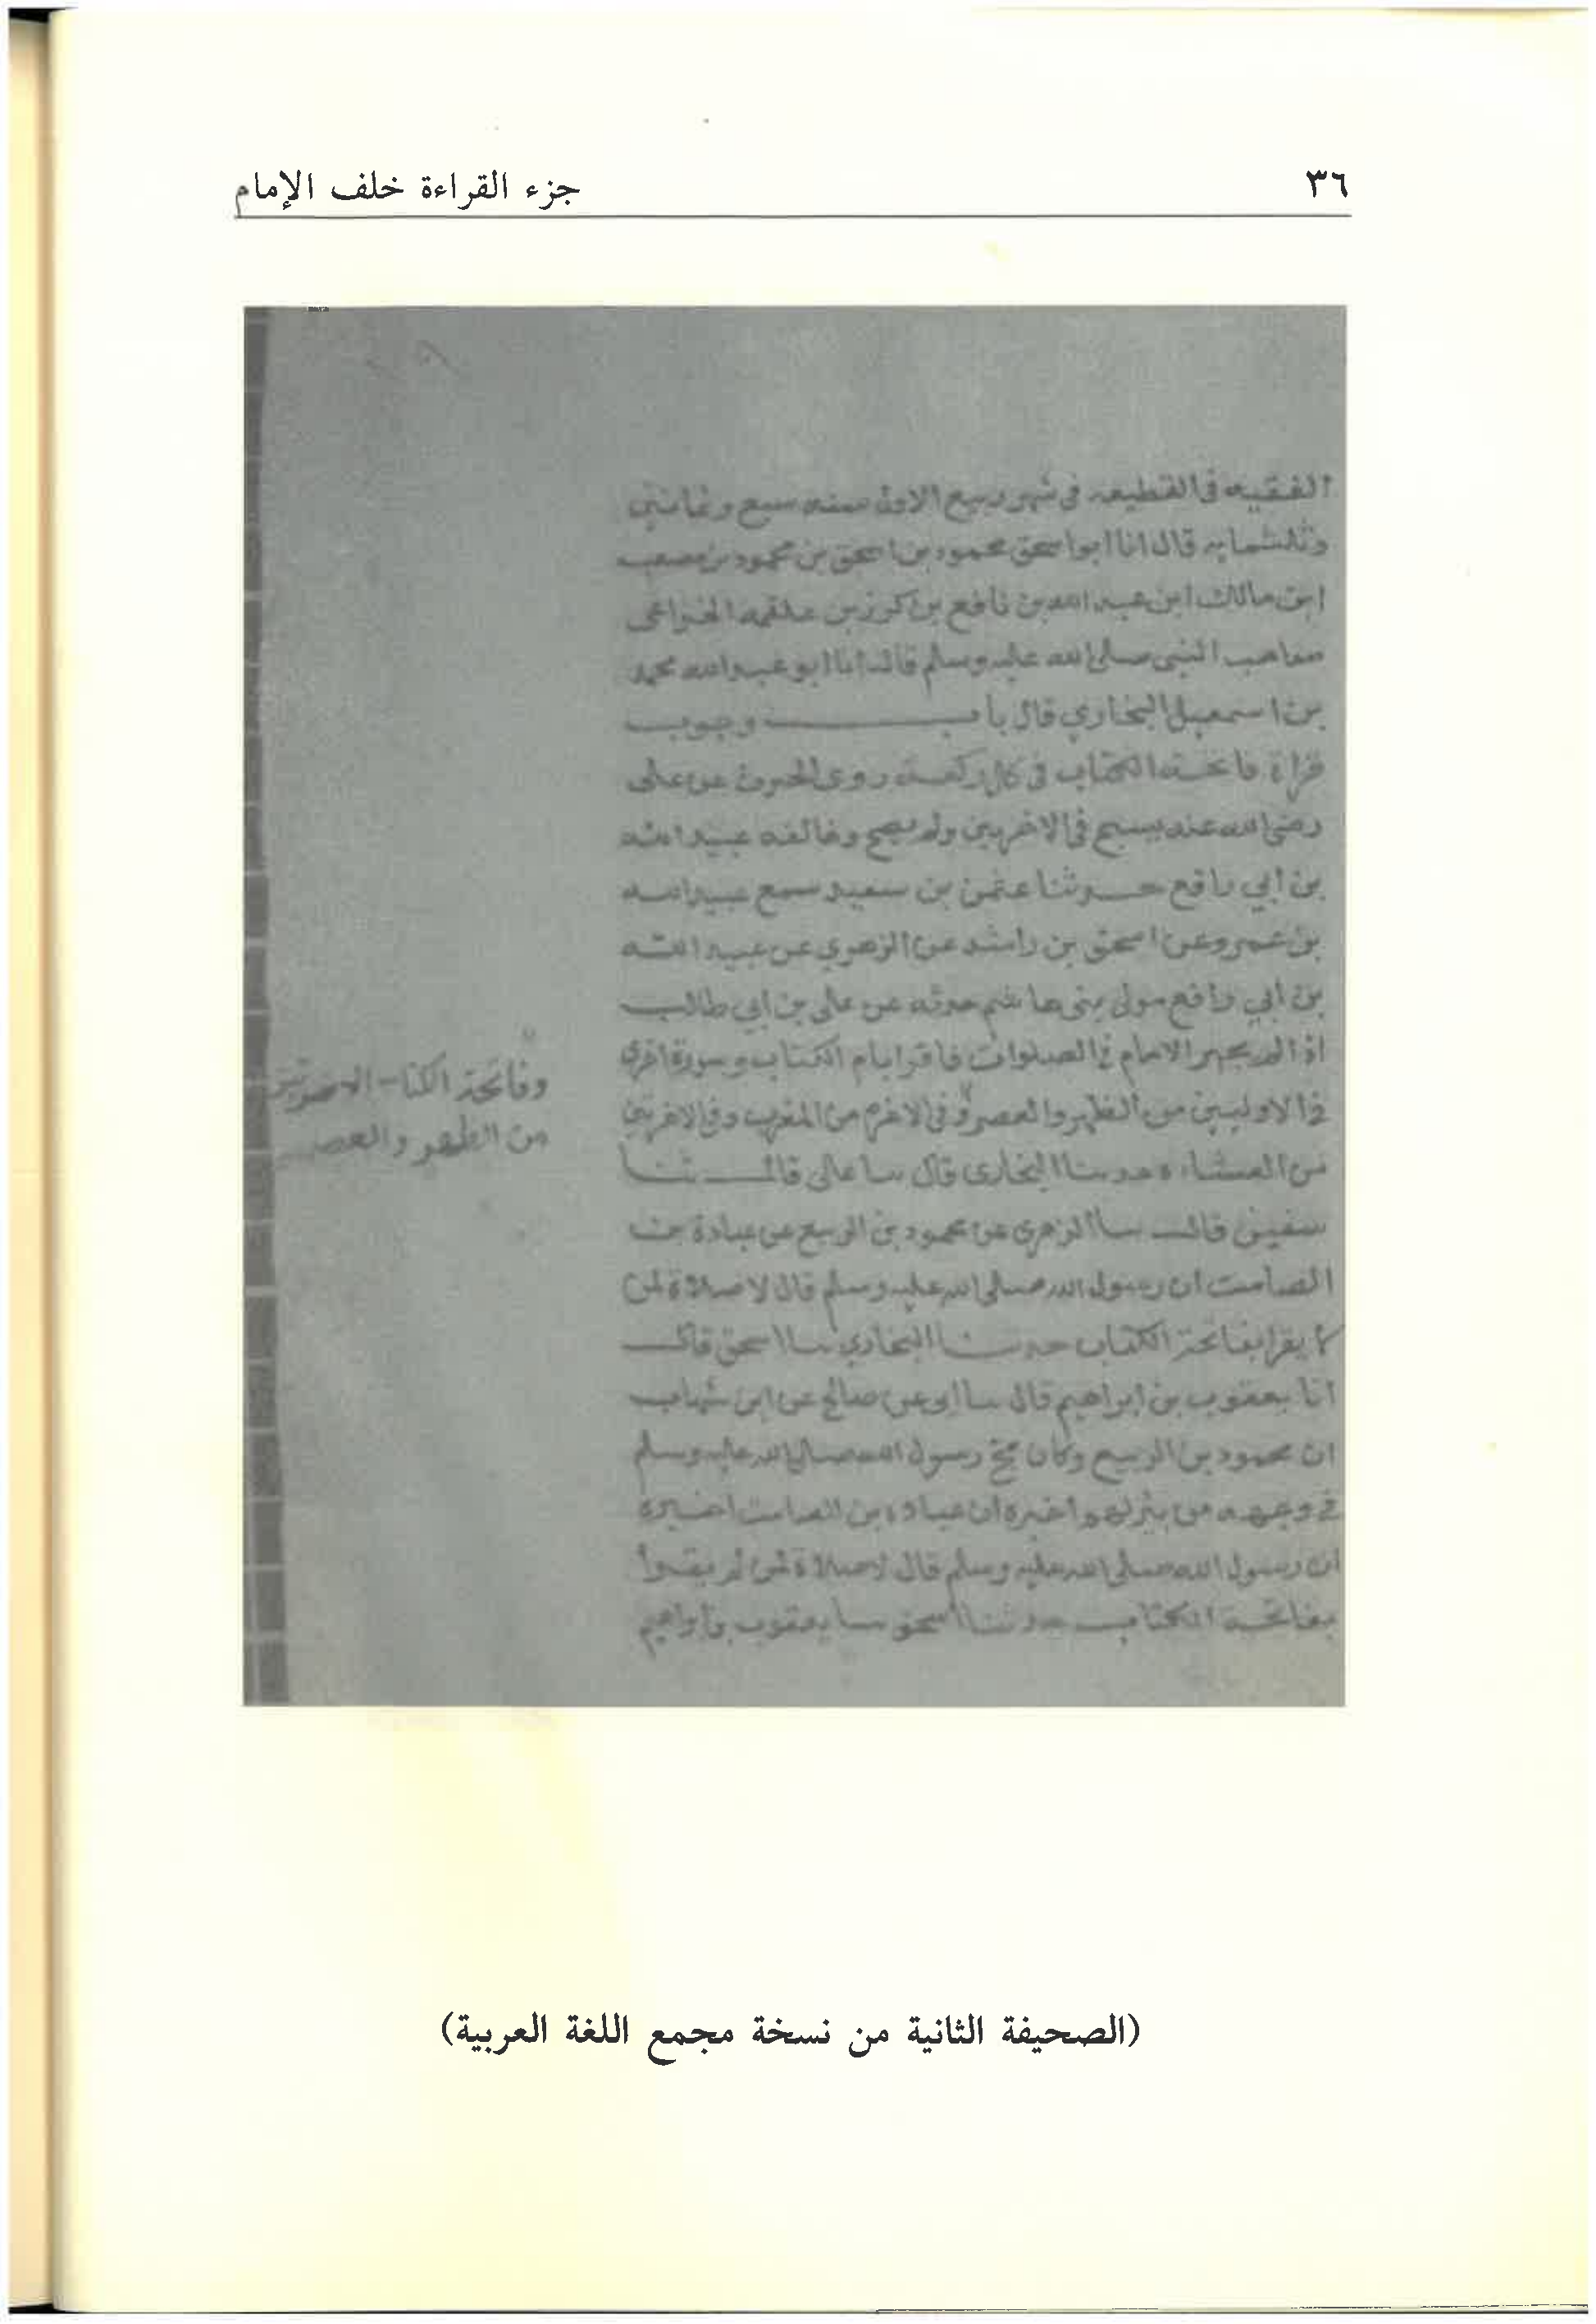 ٣٦
جزء القراءة خلف الإمام
الفقيه في القطيعه في شهر ربيع الاول سنه سبع وثمانين
وثلثمايه قال انا ابو اسحق محمود بن اسحق بن محمود بن مصعب
ابن مالك ابن عبد الله بن نافع بن كرز بن علقمه الخزاعى
صاحب النبى صلى الله عليه وسلم قال انا ابو عبد الله محمد
بن اسمعيل البخاري قال باب وجوب
قراة فاتحة الكتاب في كل ركعة روى عن على
رضى الله عنه يسبح في الاخريين ولم يصح وخالفه عبيد الله
بن ابي رافع حدثنا عثمن بن سعيد سمع عبيد الله
بن عمرو عن اسحق بن راشد عن الزهري عن عبيد الله
بن ابي رافع مولى بنى هاشم حدثه عن على بن ابي طالب
اذا لم يجهر الامام في الصلوات فاقرا بام الكتاب وسورة اخرى
في الاوليين من الظهر والعصر وفي الاخره من المغرب وفي الاخريين
من العشاء حدثنا البخارى قال سا على قال ثنا
سفين قال سا الزهرى عن محمود بن الربيع عن عبادة بن
الصامت ان رسول الله صلى الله عليه وسلم قال لا صلاة لمن
لم يقرا بفاتحة الكتاب حدثنا البخاري سا اسحق قال
انا يعقوب بن ابراهيم قال سا ابى عن صالح عن ابن شهاب
ان محمود بن الربيع وكان مج رسول الله صلى الله عليه وسلم
في وجهه من بئر لهم اخبره ان عباده بن الصامت اخبره
ان رسول الله صلى الله عليه وسلم قال لا صلاة لمن لم يقرا
بفاتحة الكتاب حدثنا اسحق سا يعقوب بن ابراهيم
وفاتحة الكتاب
من الظهر والعصر
(الصحيفة الثانية من نسخة مجمع اللغة العربية)